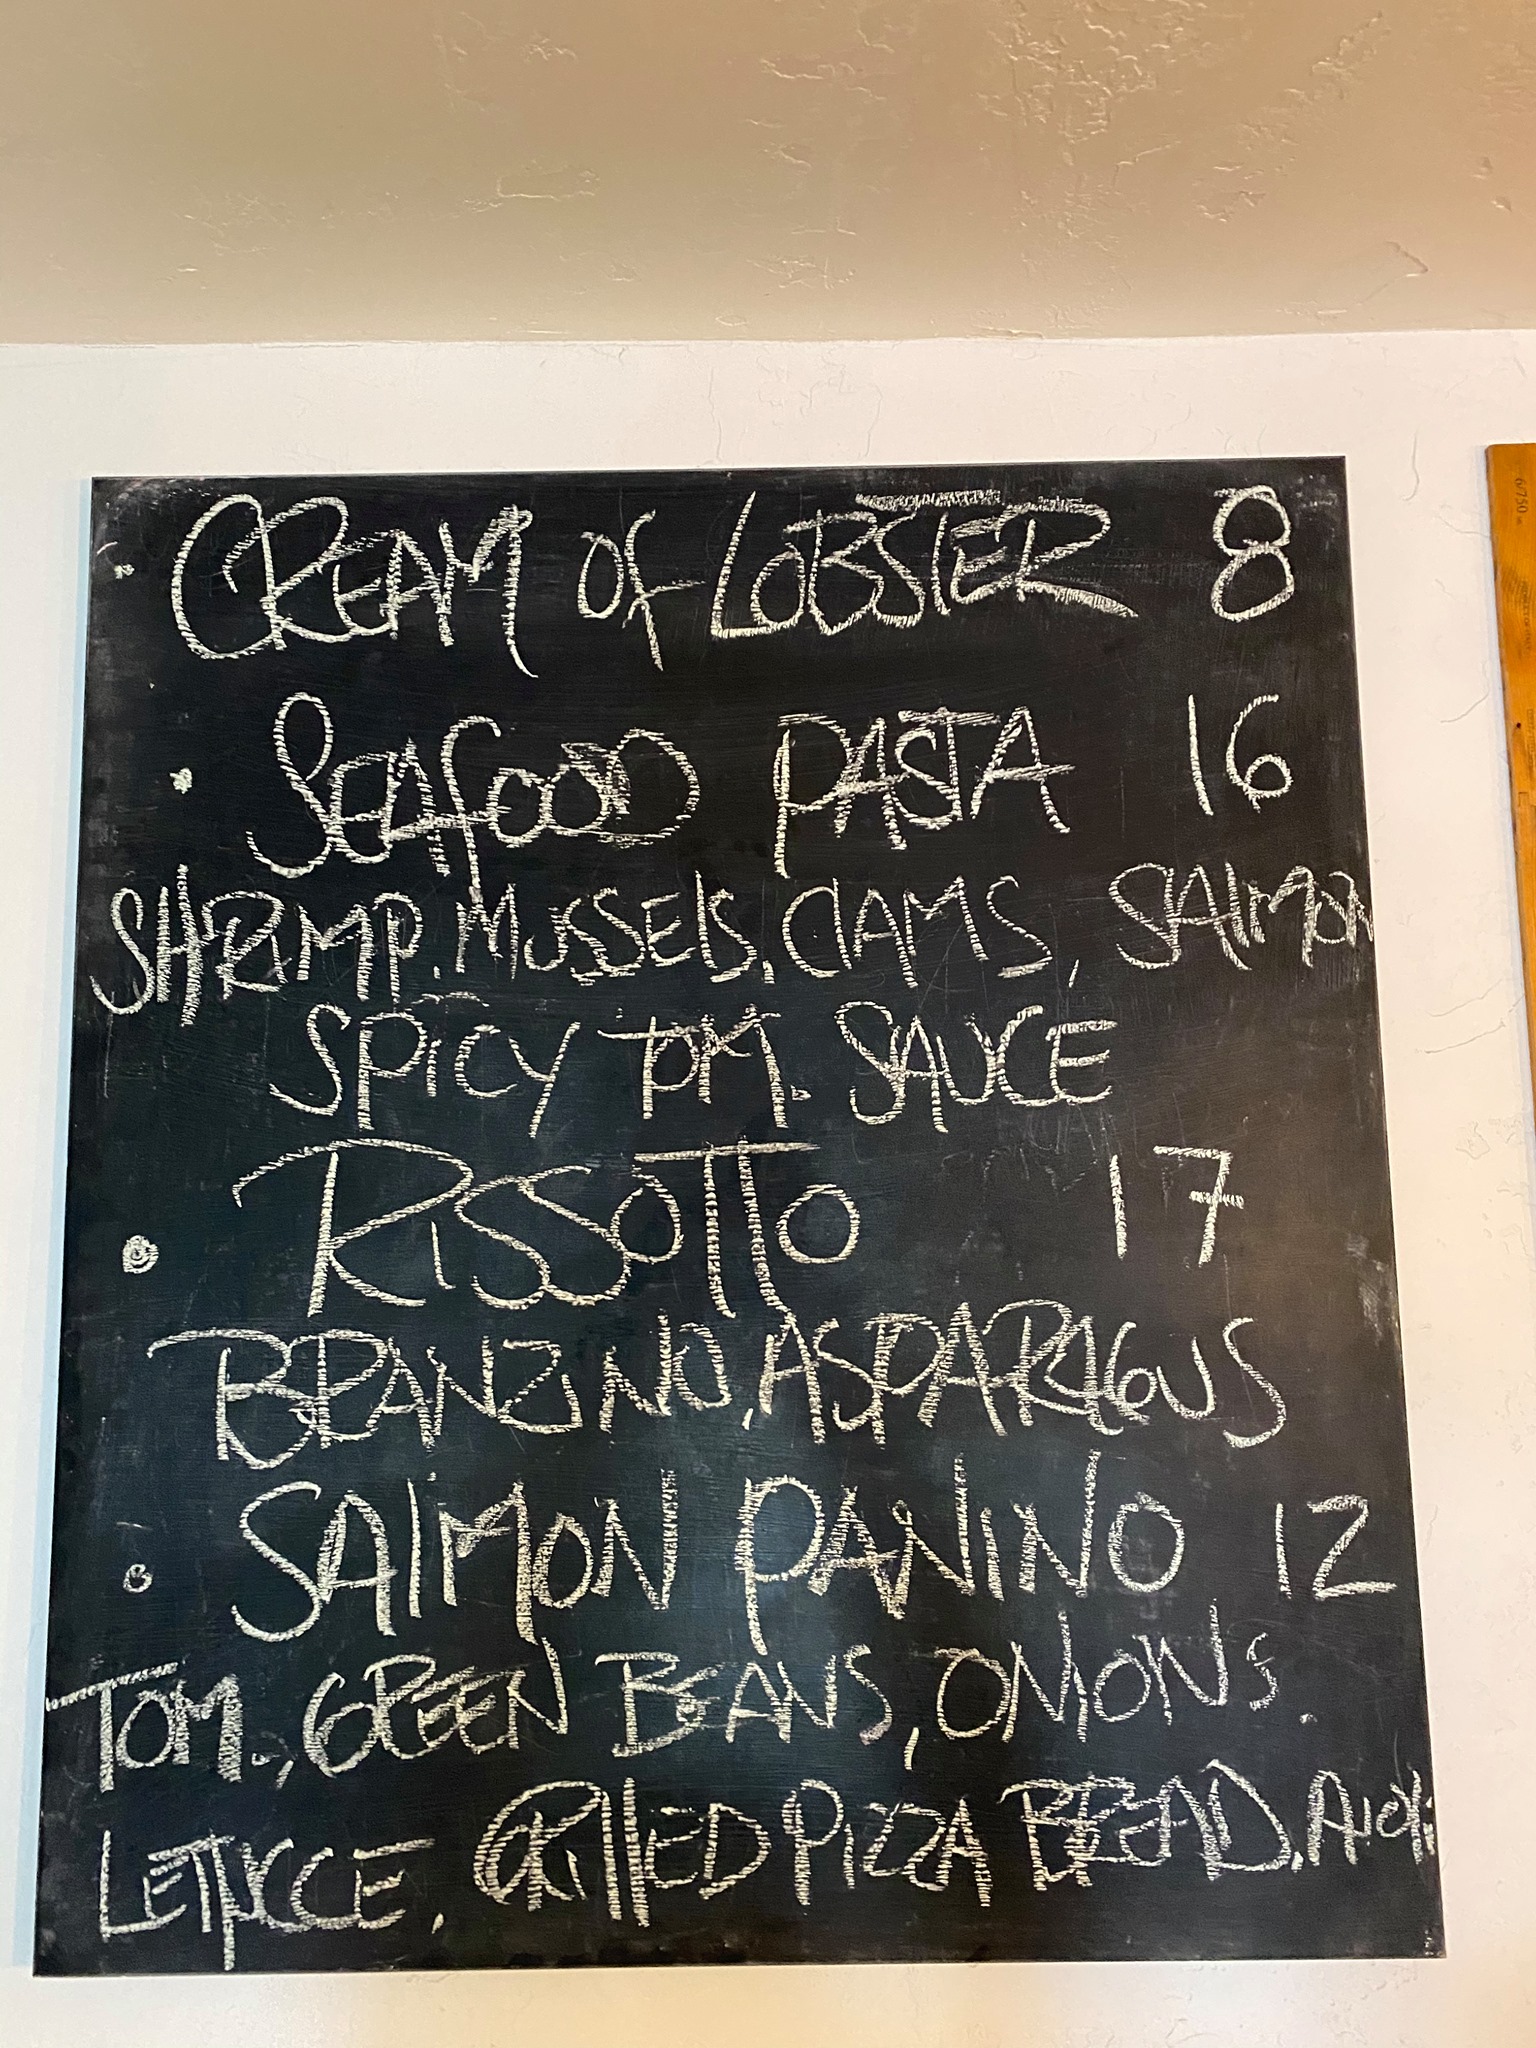 CREAM OF LOBSTER 8
SEAFOOD PASTA 16
SHRIMP, MUSSELS, CLAMS, SALMON
SPICY TOM. SAUCE
RISSOTTO 17
BRANZINO, ASPARAGUS
SALMON PANINO 12
TOM., GREEN BEANS, ONIONS.
LETTUCE, GRILLED PIZZA BREAD, AIOLI
6/750